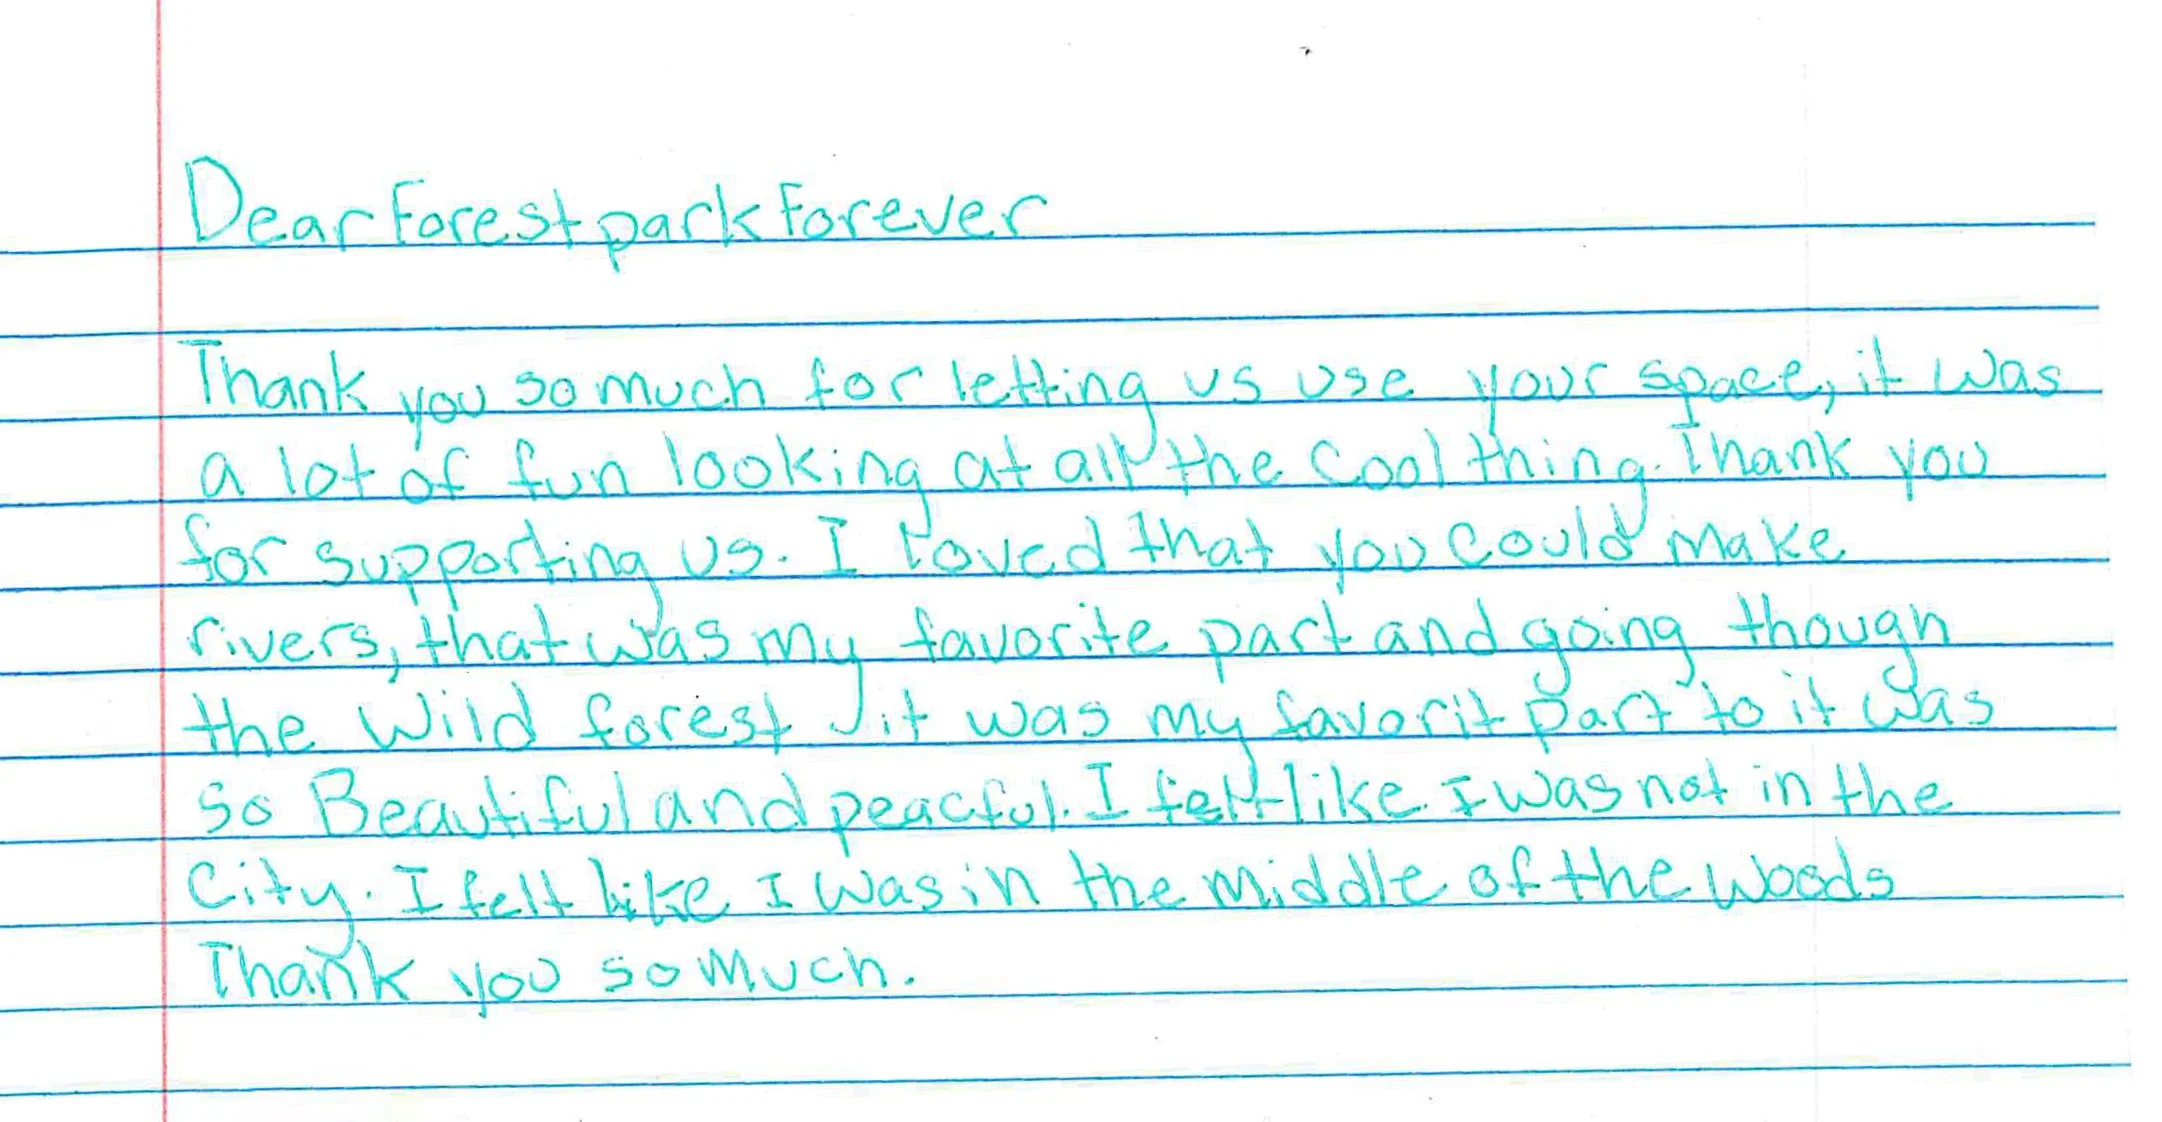 Dear Forest park Forever
Thank you so much for letting us use your space, it was
a lot of fun looking at all the cool thing. Thank you
for supporting us. I loved that you could make
rivers, that was my favorite part and going though
the wild forest it was my favorit part to it was
so Beautiful and peacful. I felt like I was not in the
city. I felt like I was in the middle of the woods
Thank you so much.